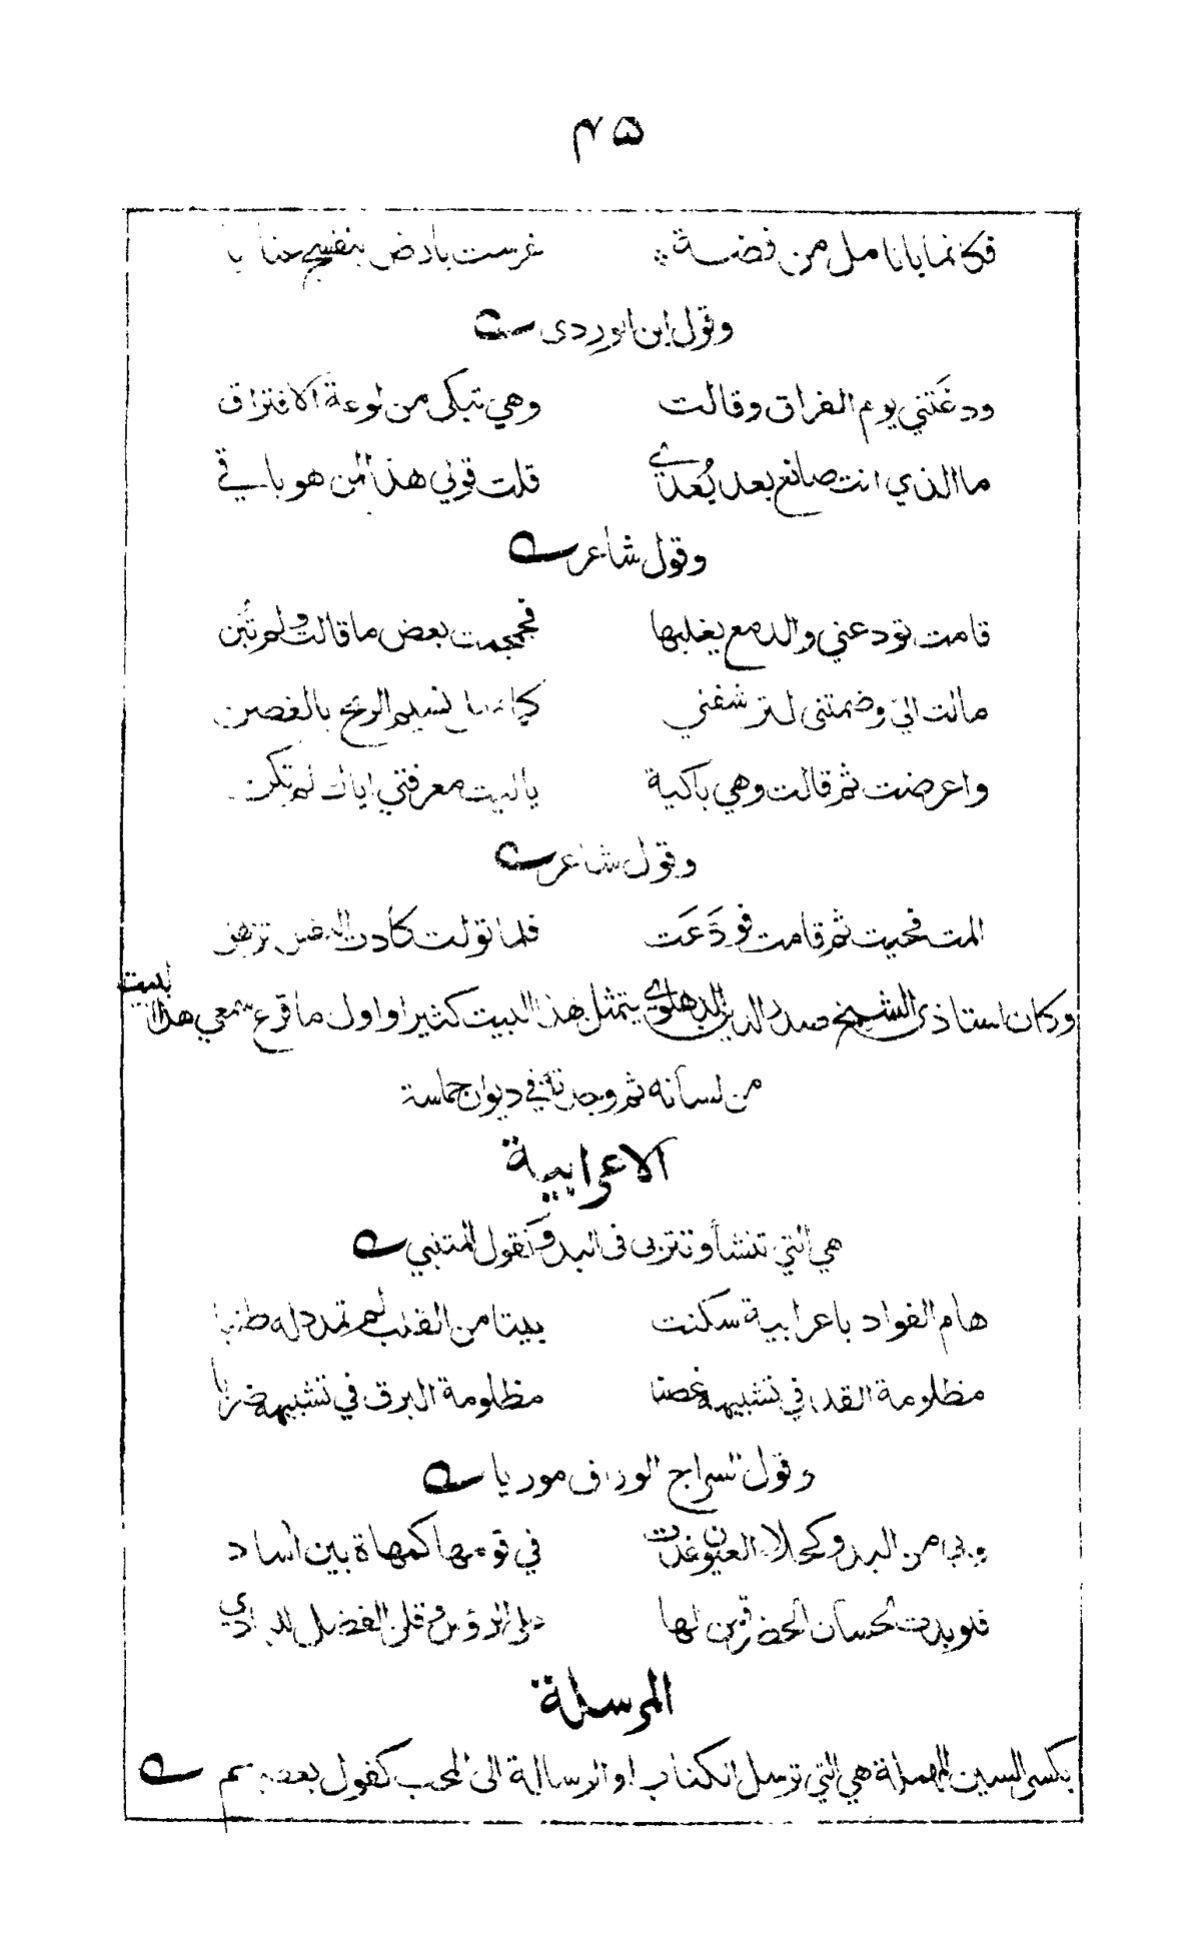 ۴۵
فكانما بانامل من فضة غرست بارض بنفسج عنابا
وقول ابن الوردى
ودعَتني يوم الفراق وقالت وهي تبكى من لوعة الافتراق
ما الذي انت صانع بعد بُعدي قلت قولي هذا لمن هو باقي
وقول شاعر
قامت تودعني والدمع يغلبها فجمجمت بعض ما قالت ولم تُبن
مالت الي وضمتنى لترشفني كما يميل نسيم الريح بالغصن
واعرضت ثم قالت وهي باكية يا ليت معرفتي اياك لم تكن
وقول شاعر
المت فحيت ثم قامت فودَّعَت فلما تولت كادت النفس تزهق
وكان استاذى الشيخ صدر الدين الدهلوي يتمثل هذا البيت كثيرا واول ما قرع سمعي هذا البيت
من لسانه ثم وجدته في ديوان حماسة
الاعرابية
هي التي تنشأ وتتربى فى البدو كَقول المتنبي
هام الفواد باعرابية سكنت بيتا من القلب لم تمدد له طنبا
مظلومة القد في تشبيهه غصنا مظلومة البرق في تشبيهه ضربا
وقول السراج الوراق موريا
وبي من البدو كحلاء العيون غدت في قومها كمهاة بين اساد
فلو بدت لحسان الحضر قمن لها على الرؤس وقلن الفضل للبادي
المرسلة
بكسر السين المهملة هي التي ترسل الكتاب او الرسالة الى المحب كقول بعضهم